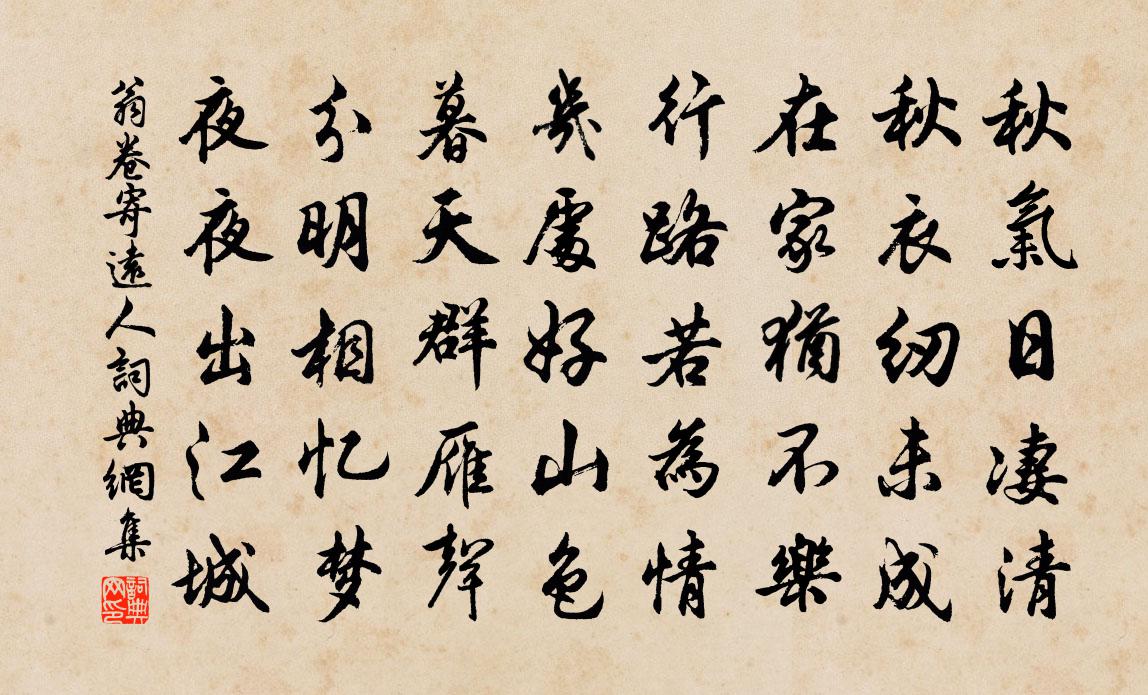 秋氣日凄清
秋衣紉未成
在家猶不樂
行路若為情
幾處好山色
暮天群雁聲
分明相忆梦
夜夜出江城
翁卷寄遠人詞典網集
詞典
网印